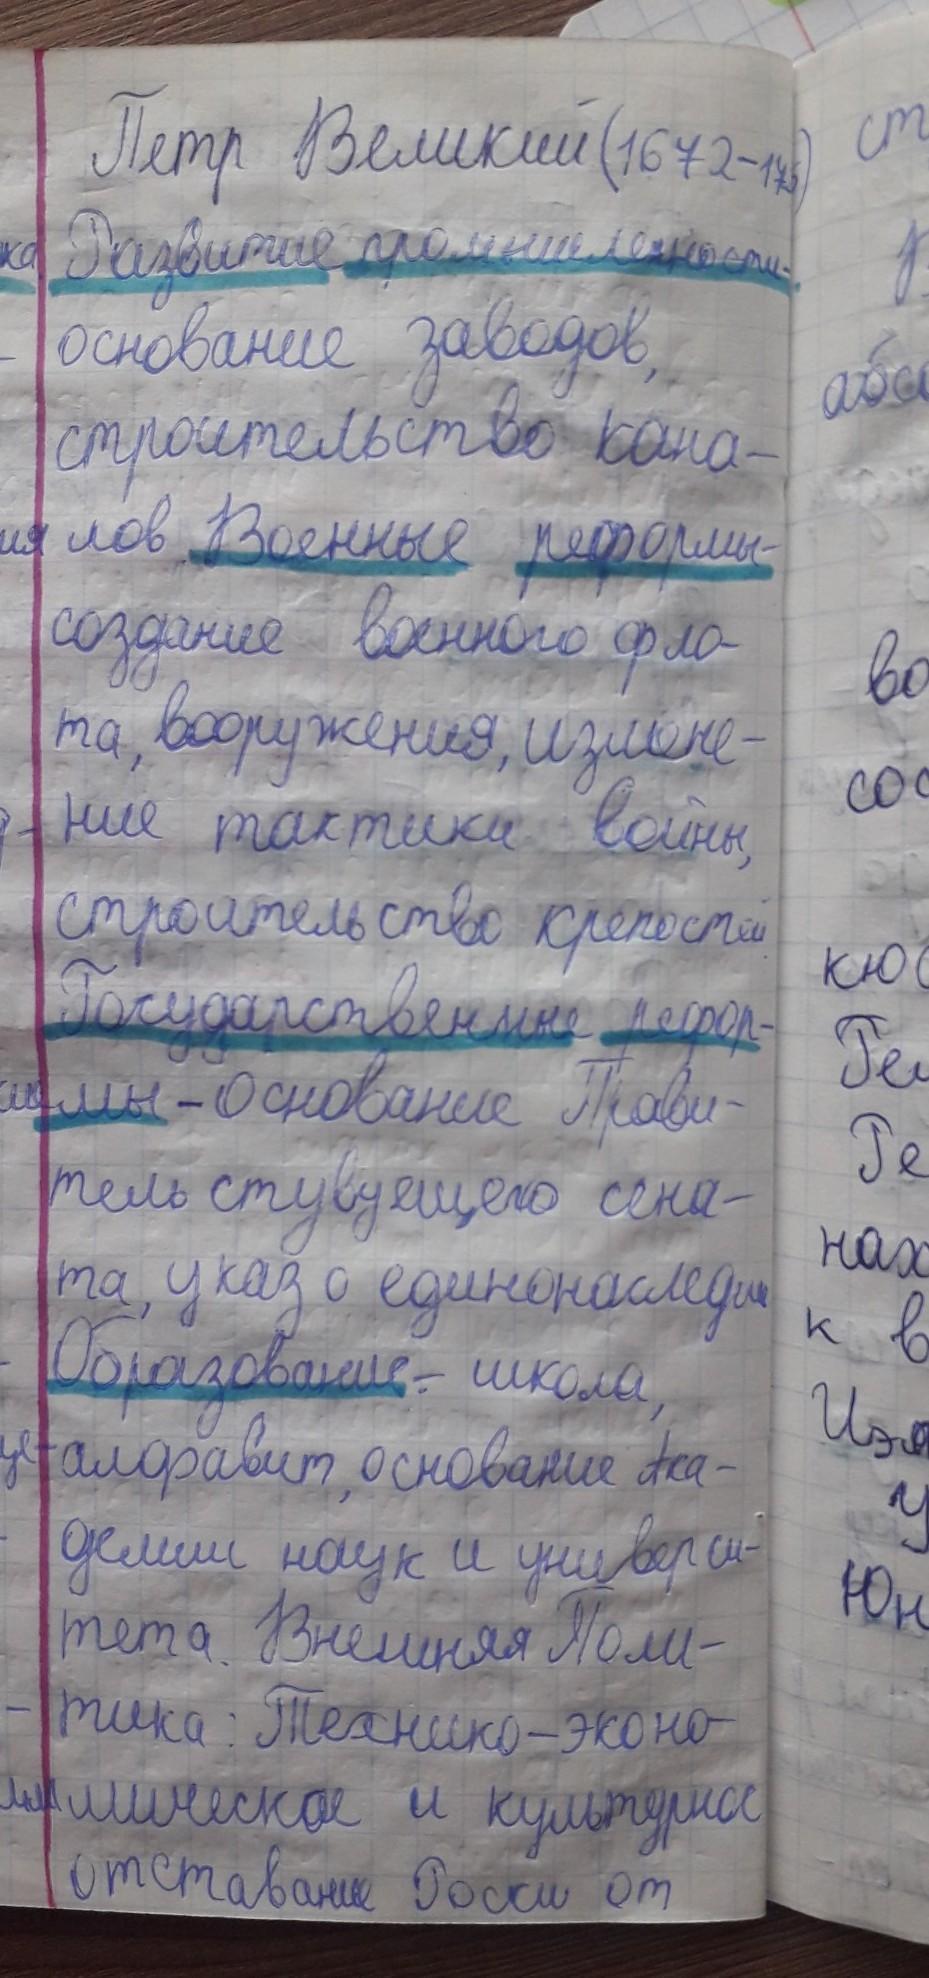 Петр Великий (1672-175)
Развитие промышленности-
основание заводов,
строительство кана-
лов Военные реформы-
создание военного фло-
та, вооружения, измене-
ние тактики войны,
строительство крепостей
Государственные рефор-
мы - Основание Прави-
тельствуещего сена-
та, указ о единонаследии
Образование - школа,
алфавит, основание Ака-
демии наук и универси-
тета. Внешняя Поли-
тика: Технико-эконо-
мическое и культурное
отставание Росии от
ст
абсо
во
сос
кюб
Ге
нах
к в
Изм
у
Юн